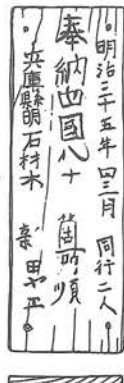 明治三十五年四三月 同行二人
奉納四国八十 箇所順
兵庫縣明石材木